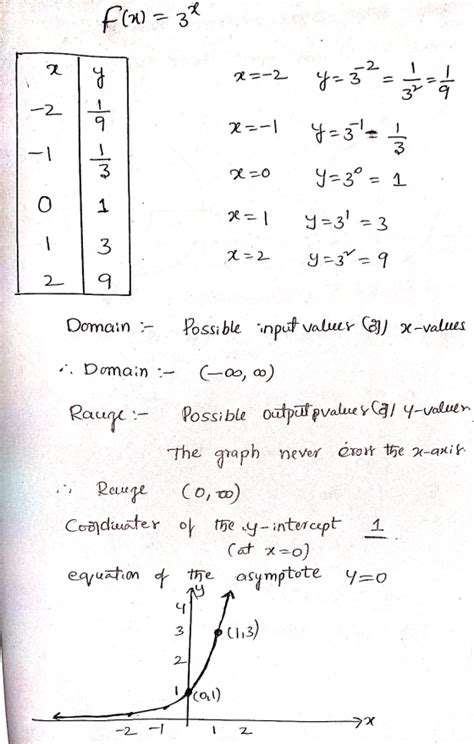 f(x) = 3^x
x y
-2 1/9
-1 1/3
0 1
1 3
2 9
x=-2 y=3^-2 = 1/3^2 = 1/9
x=-1 y=3^-1 = 1/3
x=0 y=3^0 = 1
x=1 y=3^1 = 3
x=2 y=3^2 = 9
Domain :- Possible input values (or) x-values
∴ Domain :- (-∞, ∞)
Range :- Possible output values (or) y-values
The graph never cross the x-axis
∴ Range (0, ∞)
Coordinates of the y-intercept 1
(at x=0)
equation of the asymptote y=0
y
4
3 (1,3)
2
1 (0,1)
-2 -1 1 2 x